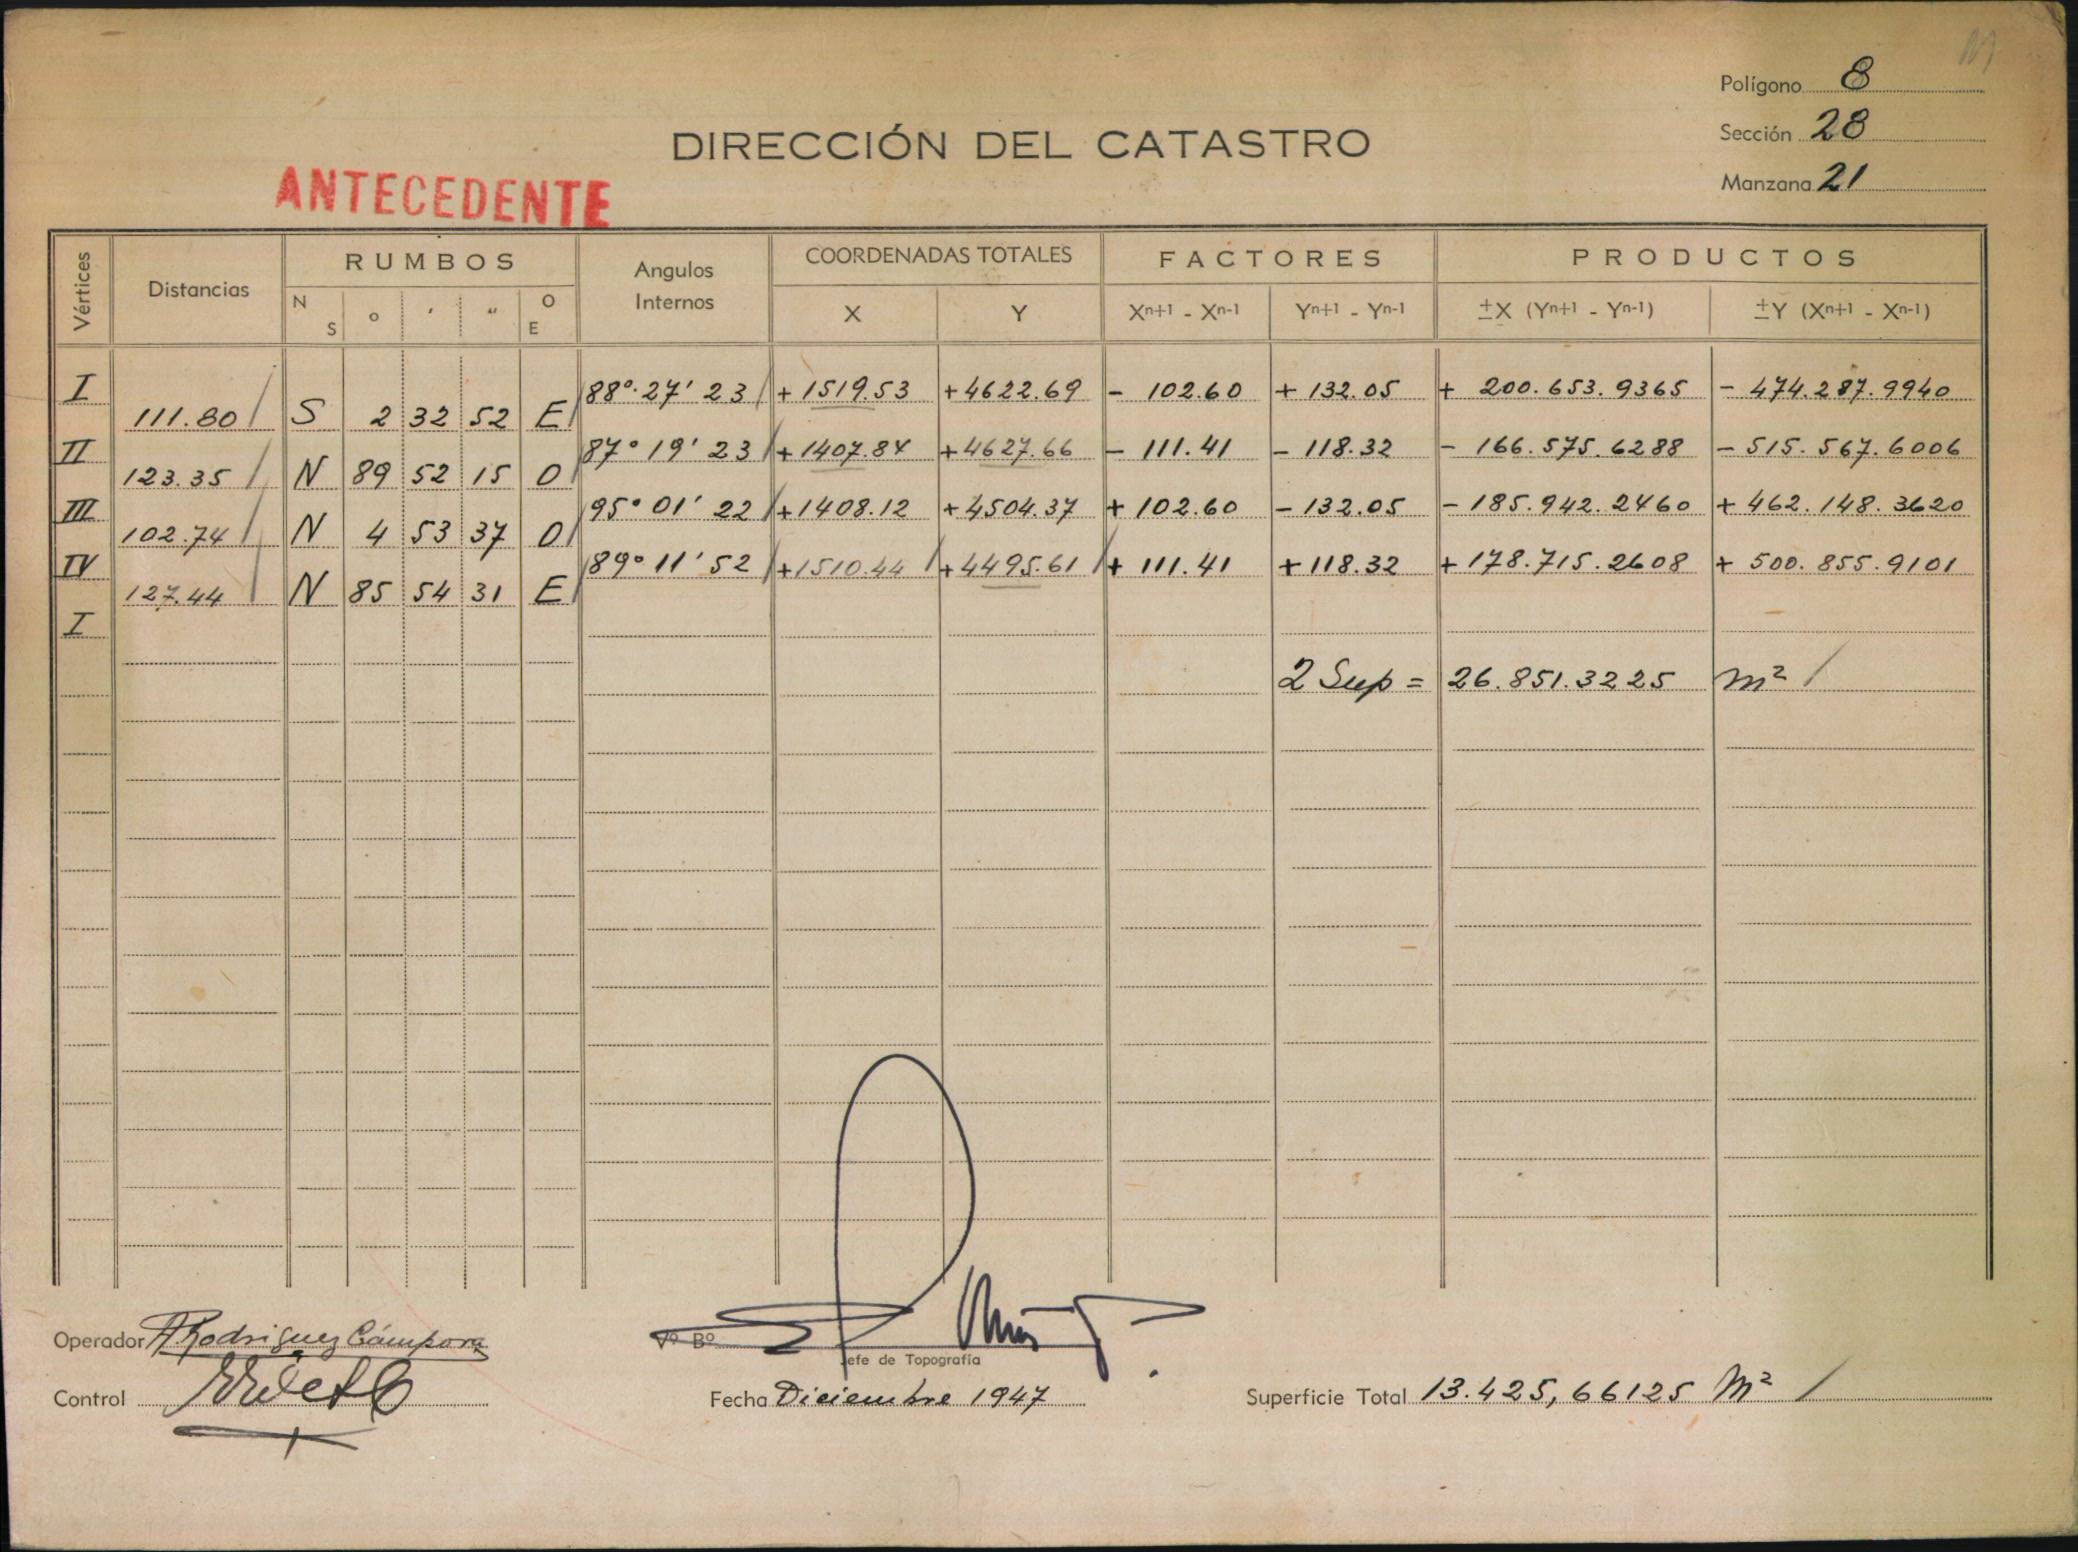 Polígono 8
DIRECCIÓN DEL CATASTRO
Sección 28
ANTECEDENTE
Manzana 21
Vértices Distancias RUMBOS Angulos Internos COORDENADAS TOTALES FACTORES PRODUCTOS
N S ° ' " O E X Y Xn+1 - Xn-1 Yn+1 - Yn-1 ±X (Yn+1 - Yn-1) ±Y (Xn+1 - Xn-1)
I 88°.27' 23 +1519.53 +4622.69 - 102.60 + 132.05 + 200.653.9365 - 474.287.9940
111.80 S 2 32 52 E
II 87° 19' 23 +1407.84 +4627.66 - 111.41 - 118.32 - 166.575.6288 - 515.567.6006
123.35 N 89 52 15 O
III 95° 01' 22 +1408.12 +4504.37 + 102.60 - 132.05 - 185.942.2460 + 462.148.3620
102.74 N 4 53 37 O
IV 89° 11' 52 +1510.44 +4495.61 + 111.41 + 118.32 + 178.715.2608 + 500.855.9101
127.44 N 85 54 31 E
I
2 Sup = 26.851.3225 m²
Operador A Rodriguez Cámpora Vº Bº
Jefe de Topografía
Control Fecha Diciembre 1947 Superficie Total 13.425,66125 M²